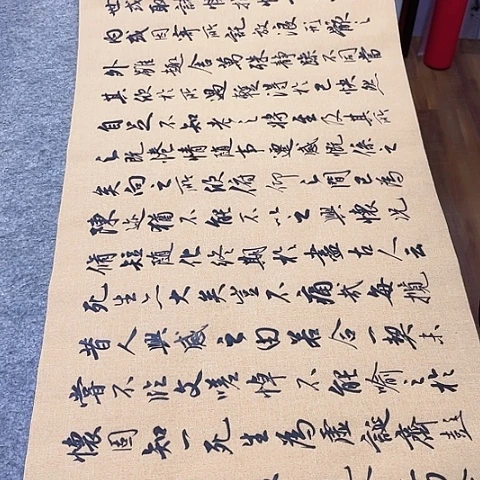 世或取諸懷抱
内或因寄所託放浪形骸之
外雖趣舍萬殊靜躁不同當
其欣於所遇暫得於己快然
自足不知老之將至及其所
之既惓情隨事遷感慨係之
矣向之所欣俯仰之間已為
陳迹猶不能不以之興懷況
脩短隨化終期於盡古人云
死生亦大矣豈不痛哉每攬
昔人興感之由若合一契未
嘗不臨文嗟悼不能喻之於
懷固知一死生為虛誕齊彭